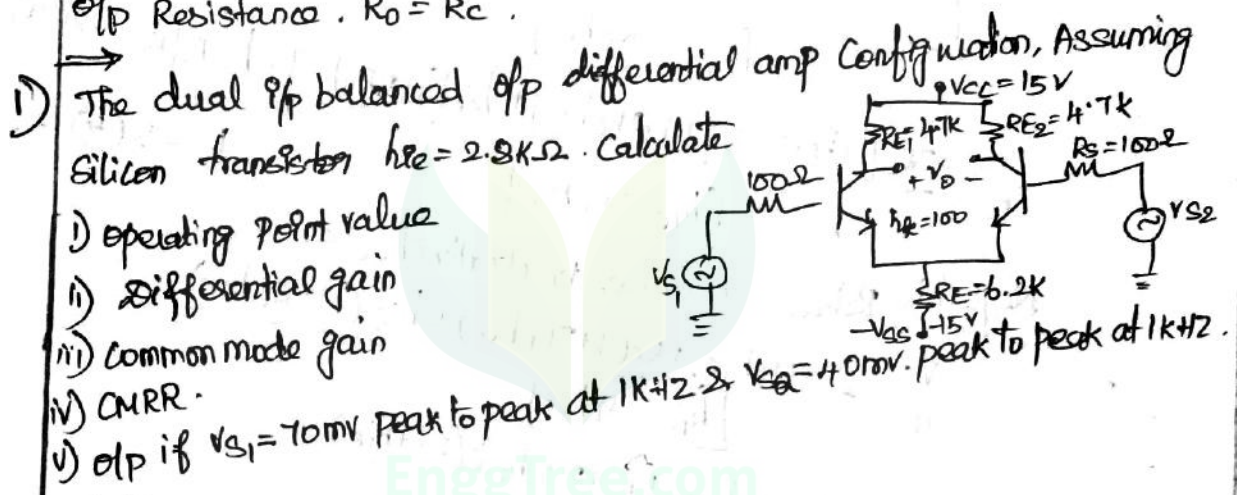 o/p Resistance. Ro = Rc.
1) The dual i/p balanced o/p differential amp Configuration, Assuming
Silicon transistor hie = 2.8KΩ. Calculate
i) operating Point value
ii) Differential gain.
iii) common mode gain
iv) CMRR.
v) o/p if VS1 = 70mv peak to peak at 1KHZ & VS2 = 40mv. peak to peak at 1KHZ.
VCC = 15V
RE1 = 4.7K
RE2 = 4.7K
RS = 100Ω
100Ω
+ Vo -
hfe = 100
VS1
VS2
RE = 6.2K
-VSS -15V
EnggTree.com